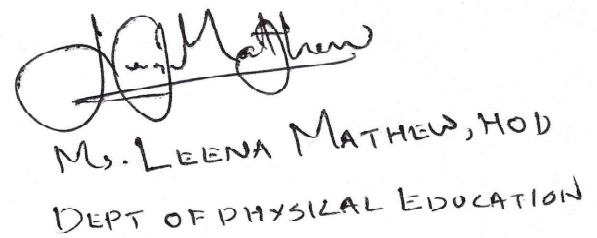 Mathew
Ms. LEENA MATHEW, HOD
DEPT OF PHYSICAL EDUCATION